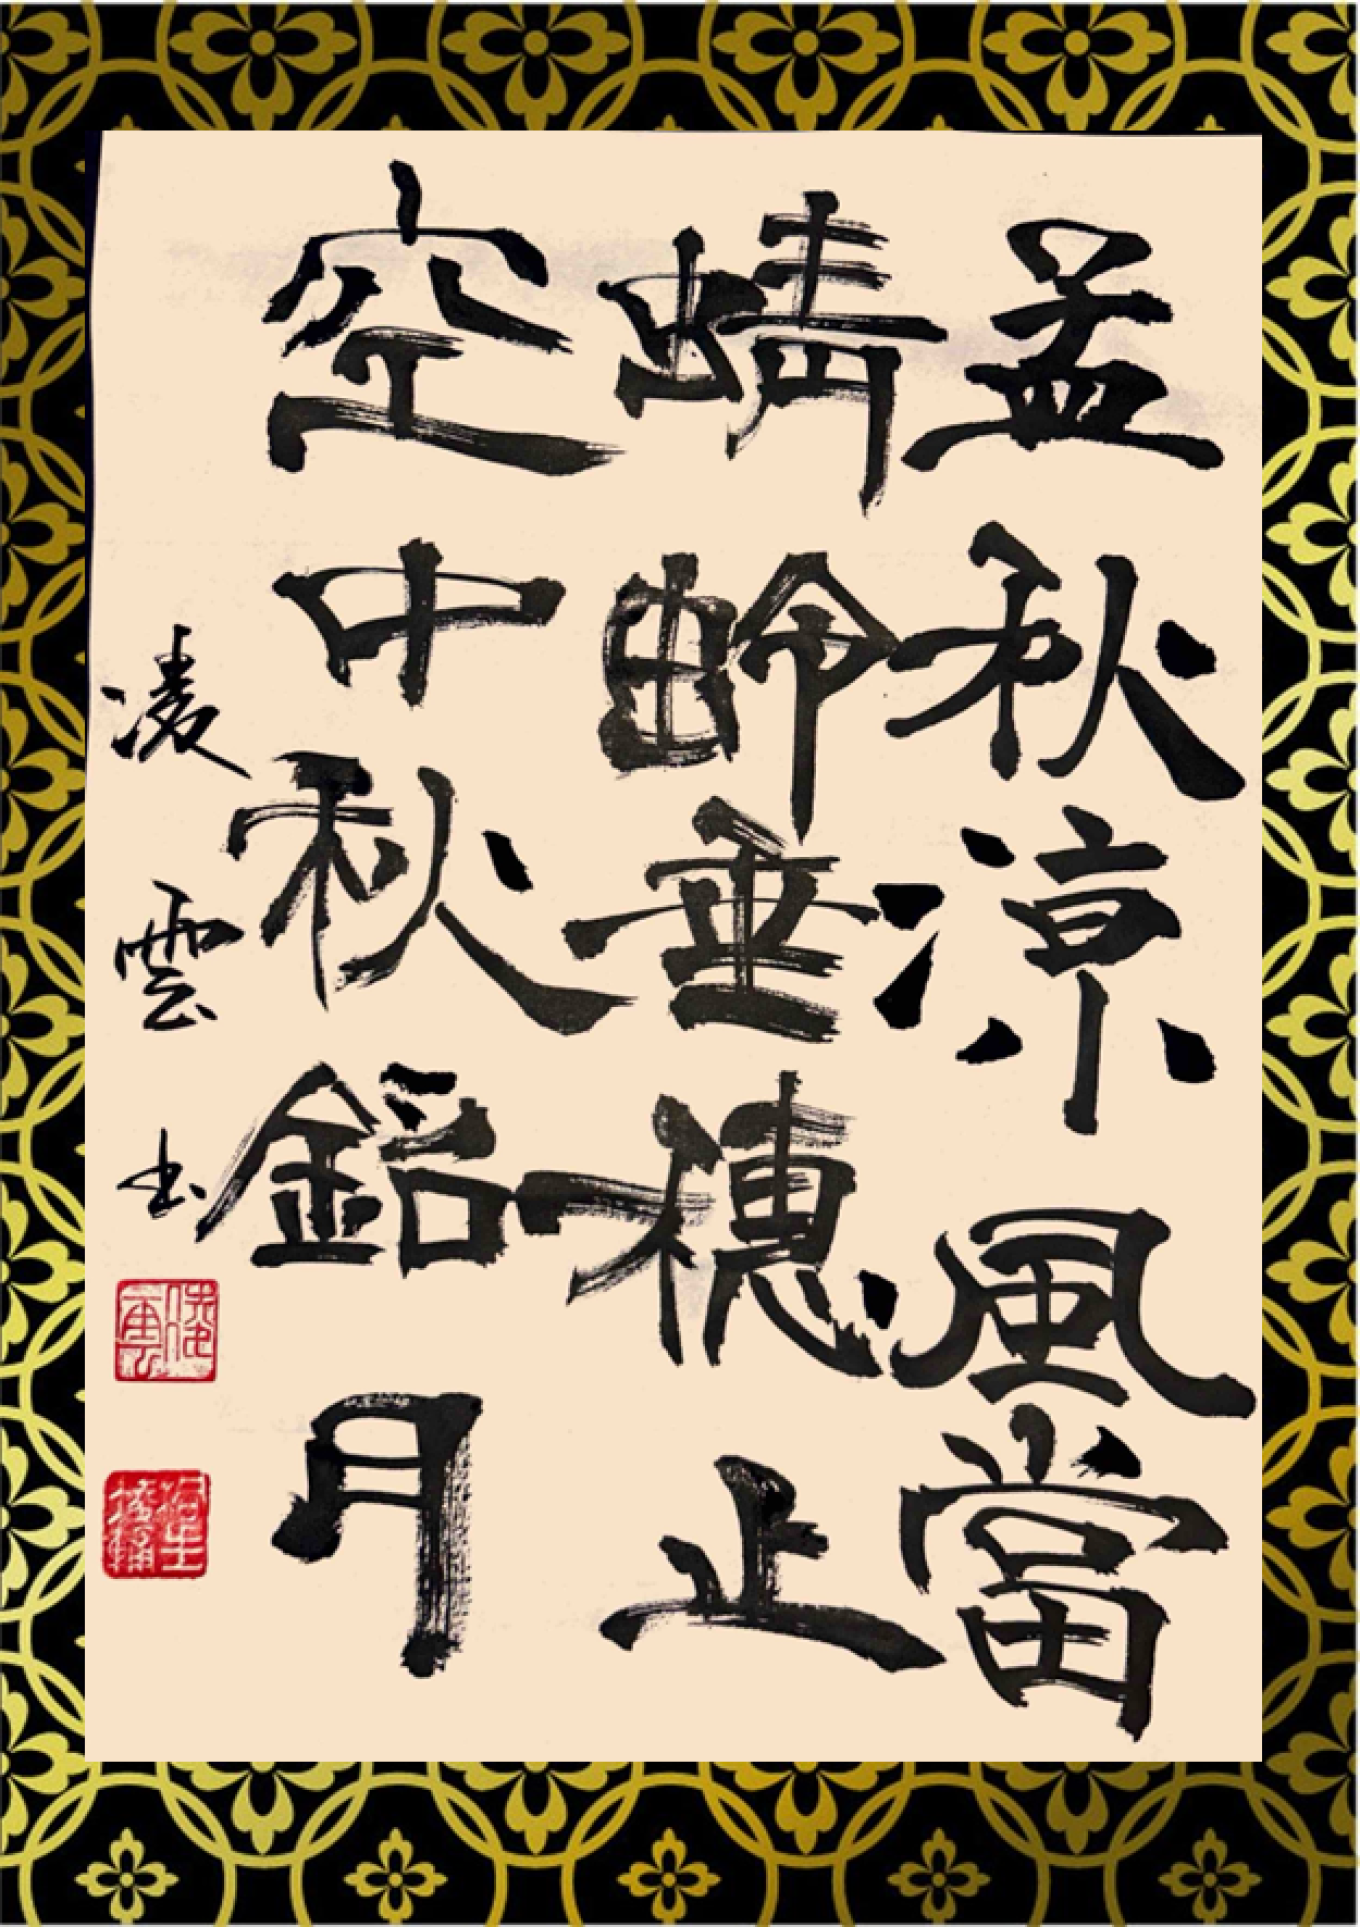 孟秋涼風當
蜻蛉垂穗止
空中秋月
凌雲書